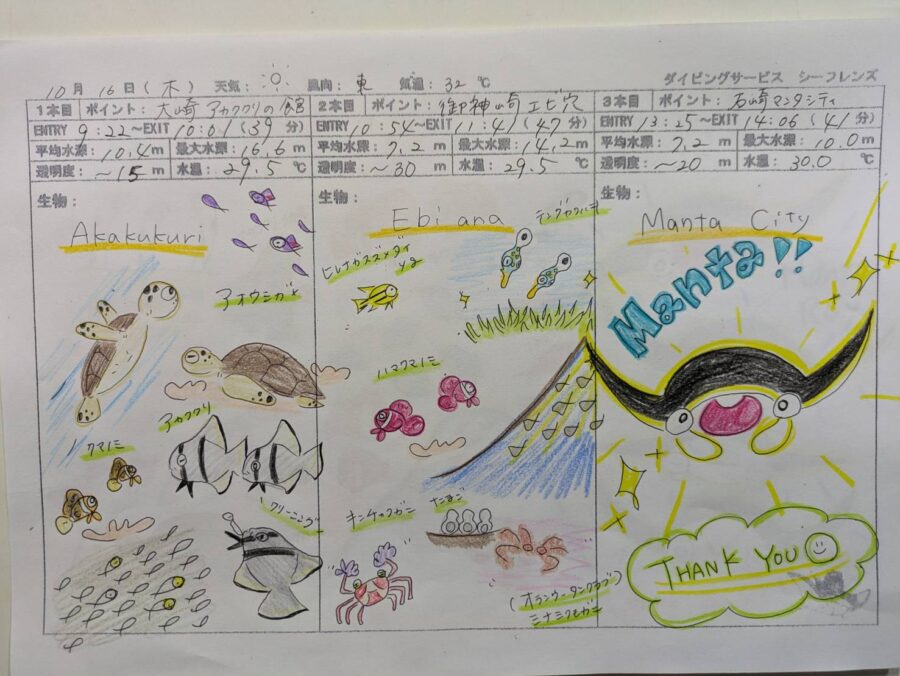 10月 16日(木) 天気: 風向: 東 気温: 32 ℃ ダイビングサービス シーフレンズ
1本目 ポイント: 大崎 アカククリの館
ENTRY 9:22～EXIT 10:01(39分)
平均水深: 10.4m 最大水深: 16.6m
透明度: ～15m 水温: 29.5℃
生物:
Akakukuri
アオウミガメ
アカククリ
クマノミ
クリーニング
2本目 ポイント: 御神崎 エビ穴
ENTRY 10:54～EXIT 11:41(47分)
平均水深: 7.2m 最大水深: 14.2m
透明度: ～30m 水温: 29.5℃
生物:
Ebi ana
テングカワハギ
ヒレナガスズメダイ
yg
ハマクマノミ
キンチャクガニ
たまご
(オランウータンクラブ)
ミナミクモガニ
3本目 ポイント: 石崎マンタシティ
ENTRY 13:25～EXIT 14:06(41分)
平均水深: 7.2m 最大水深: 10.0m
透明度: ～20m 水温: 30.0℃
生物:
Manta City
Manta!!
THANK YOU